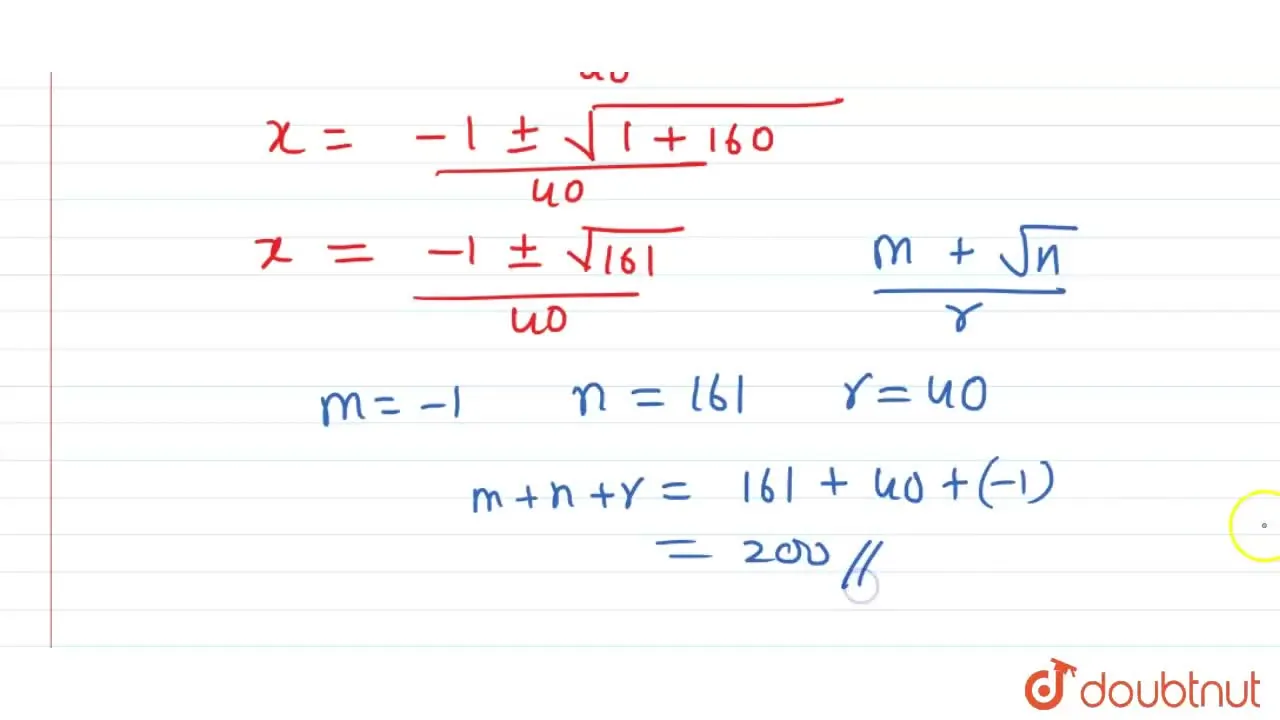 40
x = -1 ± √1 + 160
40
x = -1 ± √161
40
m + √n
r
m = -1 n = 161 r = 40
m + n + r = 161 + 40 + (-1)
= 200 //
doubtnut